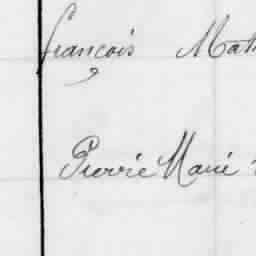 françois Math
Pierre Marie